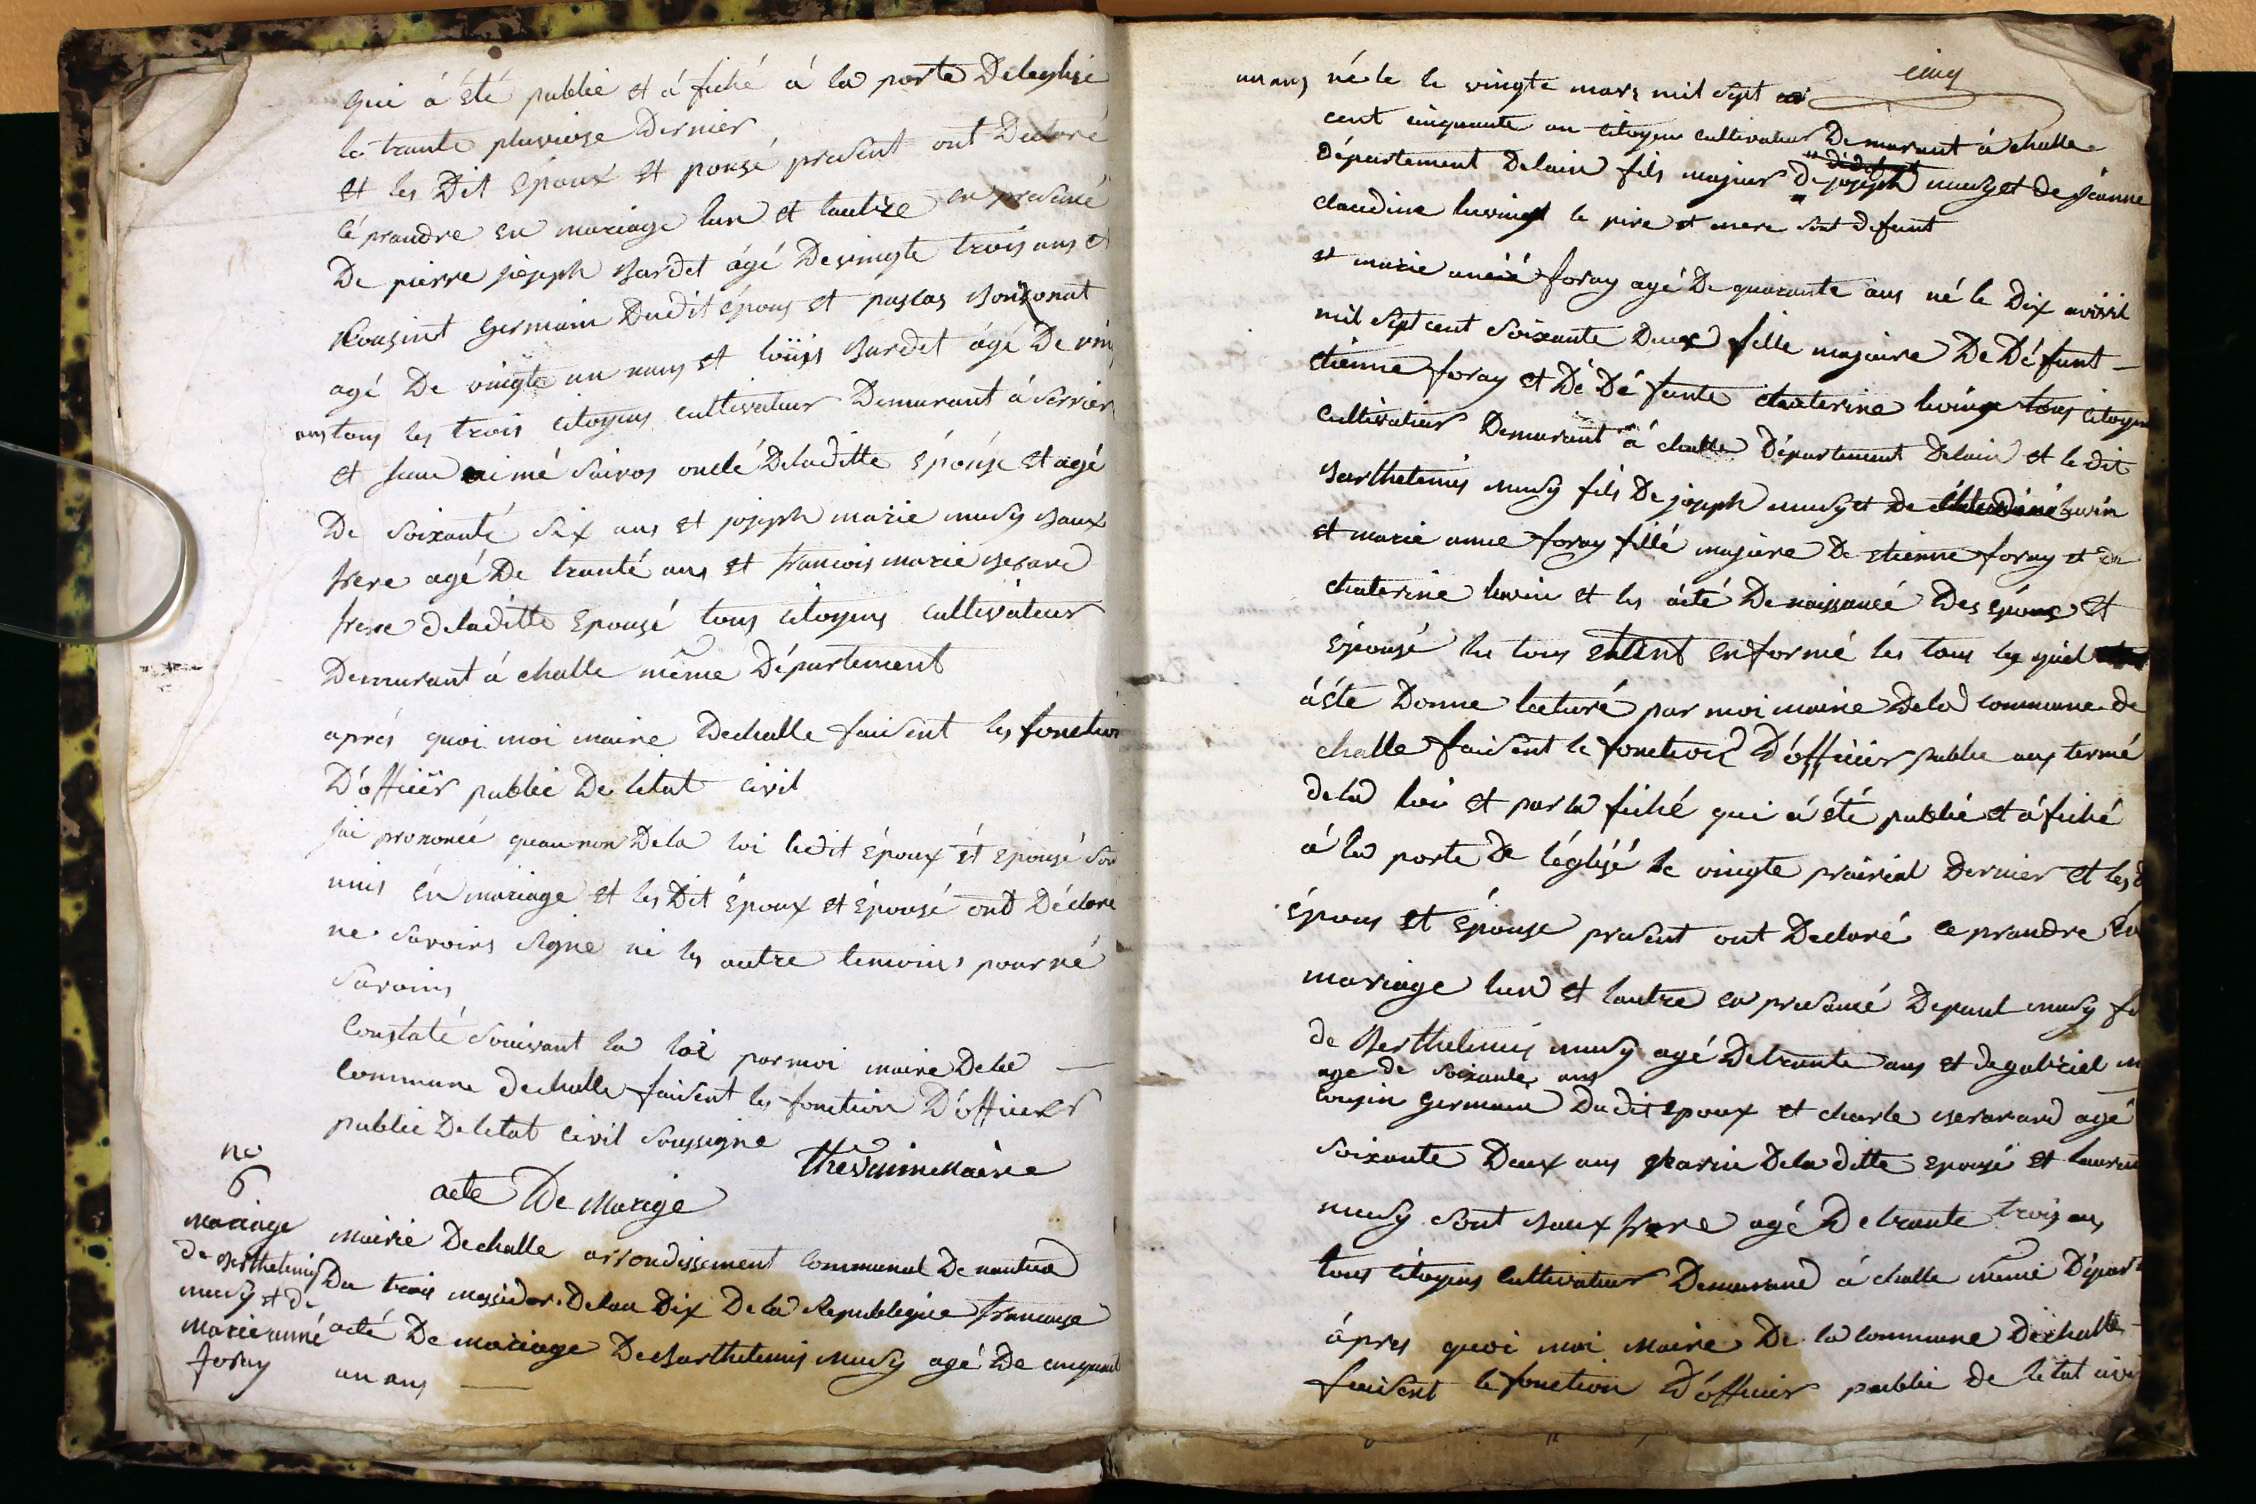 qui á été publié et á fiché á la porte Deleglise
le trante pluviose Dernier
et les Dit époux et pousé present ont Declaré
cé prandre en mariage lun et lautre en presancé
De pierre joseph Bardet ágé De vingte trois ans et
Cousint germain Dudit épous et paslas
agé De vingte un nans et loüis Bardet ágé De vin
ans tous les trois citoyens cultivateur Demurant á
et aimé onclé Deladitte épousé et agé
De soixanté six ans et joseph marie musy Baux
frere agé De tranté ans et francois marie
frere deladitte Epousé tous citoyens cultivateur
Demurant á challe même Département
aprés quoi moi maire Dechalle faisent les fonction
D'officiër public De létat civil
jai prononcé queaunon Dela loi ledit époux ét epousé son
unis én mariage et les Dit époux et épousé ont Déclaré
ne savoirs signe ni les autre temoins pour né
savoirs
Constaté souivant la loi par moi maire Dela
Commune dechalle faisent les fonction D'officier
public Deletat civil soussigné
maire
no
6
acte De Marige
mariage
de Berthelmis
musy et de
marie anné
foray
mairie Dechalle arrondissement communal De nantua
Du trois messidor Delan Dix De la Republeque francaise
acté De mariage De Barthelemis musy agé De cinquant
un ans
cinq
un ans né le le vingte mars mil sept
cent cinquante un citoyen cultivateur Demurant á challe
Département Delain fils majeur De joseph musy et de jeanne
claudine le pere et mere sont defunt
et marie foray agé De quarante ans né le Dix avril
mil sept cent soixante Deux fille majeure De Défunt
étienne foray et Dé Défunte chaterine tous citoyen
cultivateur Demurant á challe Département Delain et le dit
Barthelemis musy fils De joseph musy et De
et marie anne foray fillé majeure De etienne foray et de
chaterine et les acté De naissancé Des épous et
épousé les tous en formé les tous les quel
á éte Donne lecturé par moi maire Dela commune de
challe faisent le fonction D'officier public aux termé
dela loi et par la fiché qui á été publié et á fiché
á la porte De l'églisé le vingte prairial Dernier et les d
épous et Epouse present ont Declaré ce prandre én
mariage lun et lautre en presancé De paul musy
de Berthelemis musy agé Detrante ans et de gabriel
age de soixante ans
cousin germain Dudit epoux et charle agé
soixante Deux ans Dela ditte epousé et
musy sont Baux frere agé Detrante trois ans
tous citoyens cultivateur Demurand á challe même Depart
ápres quoi moi maire De la commune Dechalle
faisent le fonction D'officier public de létat civ